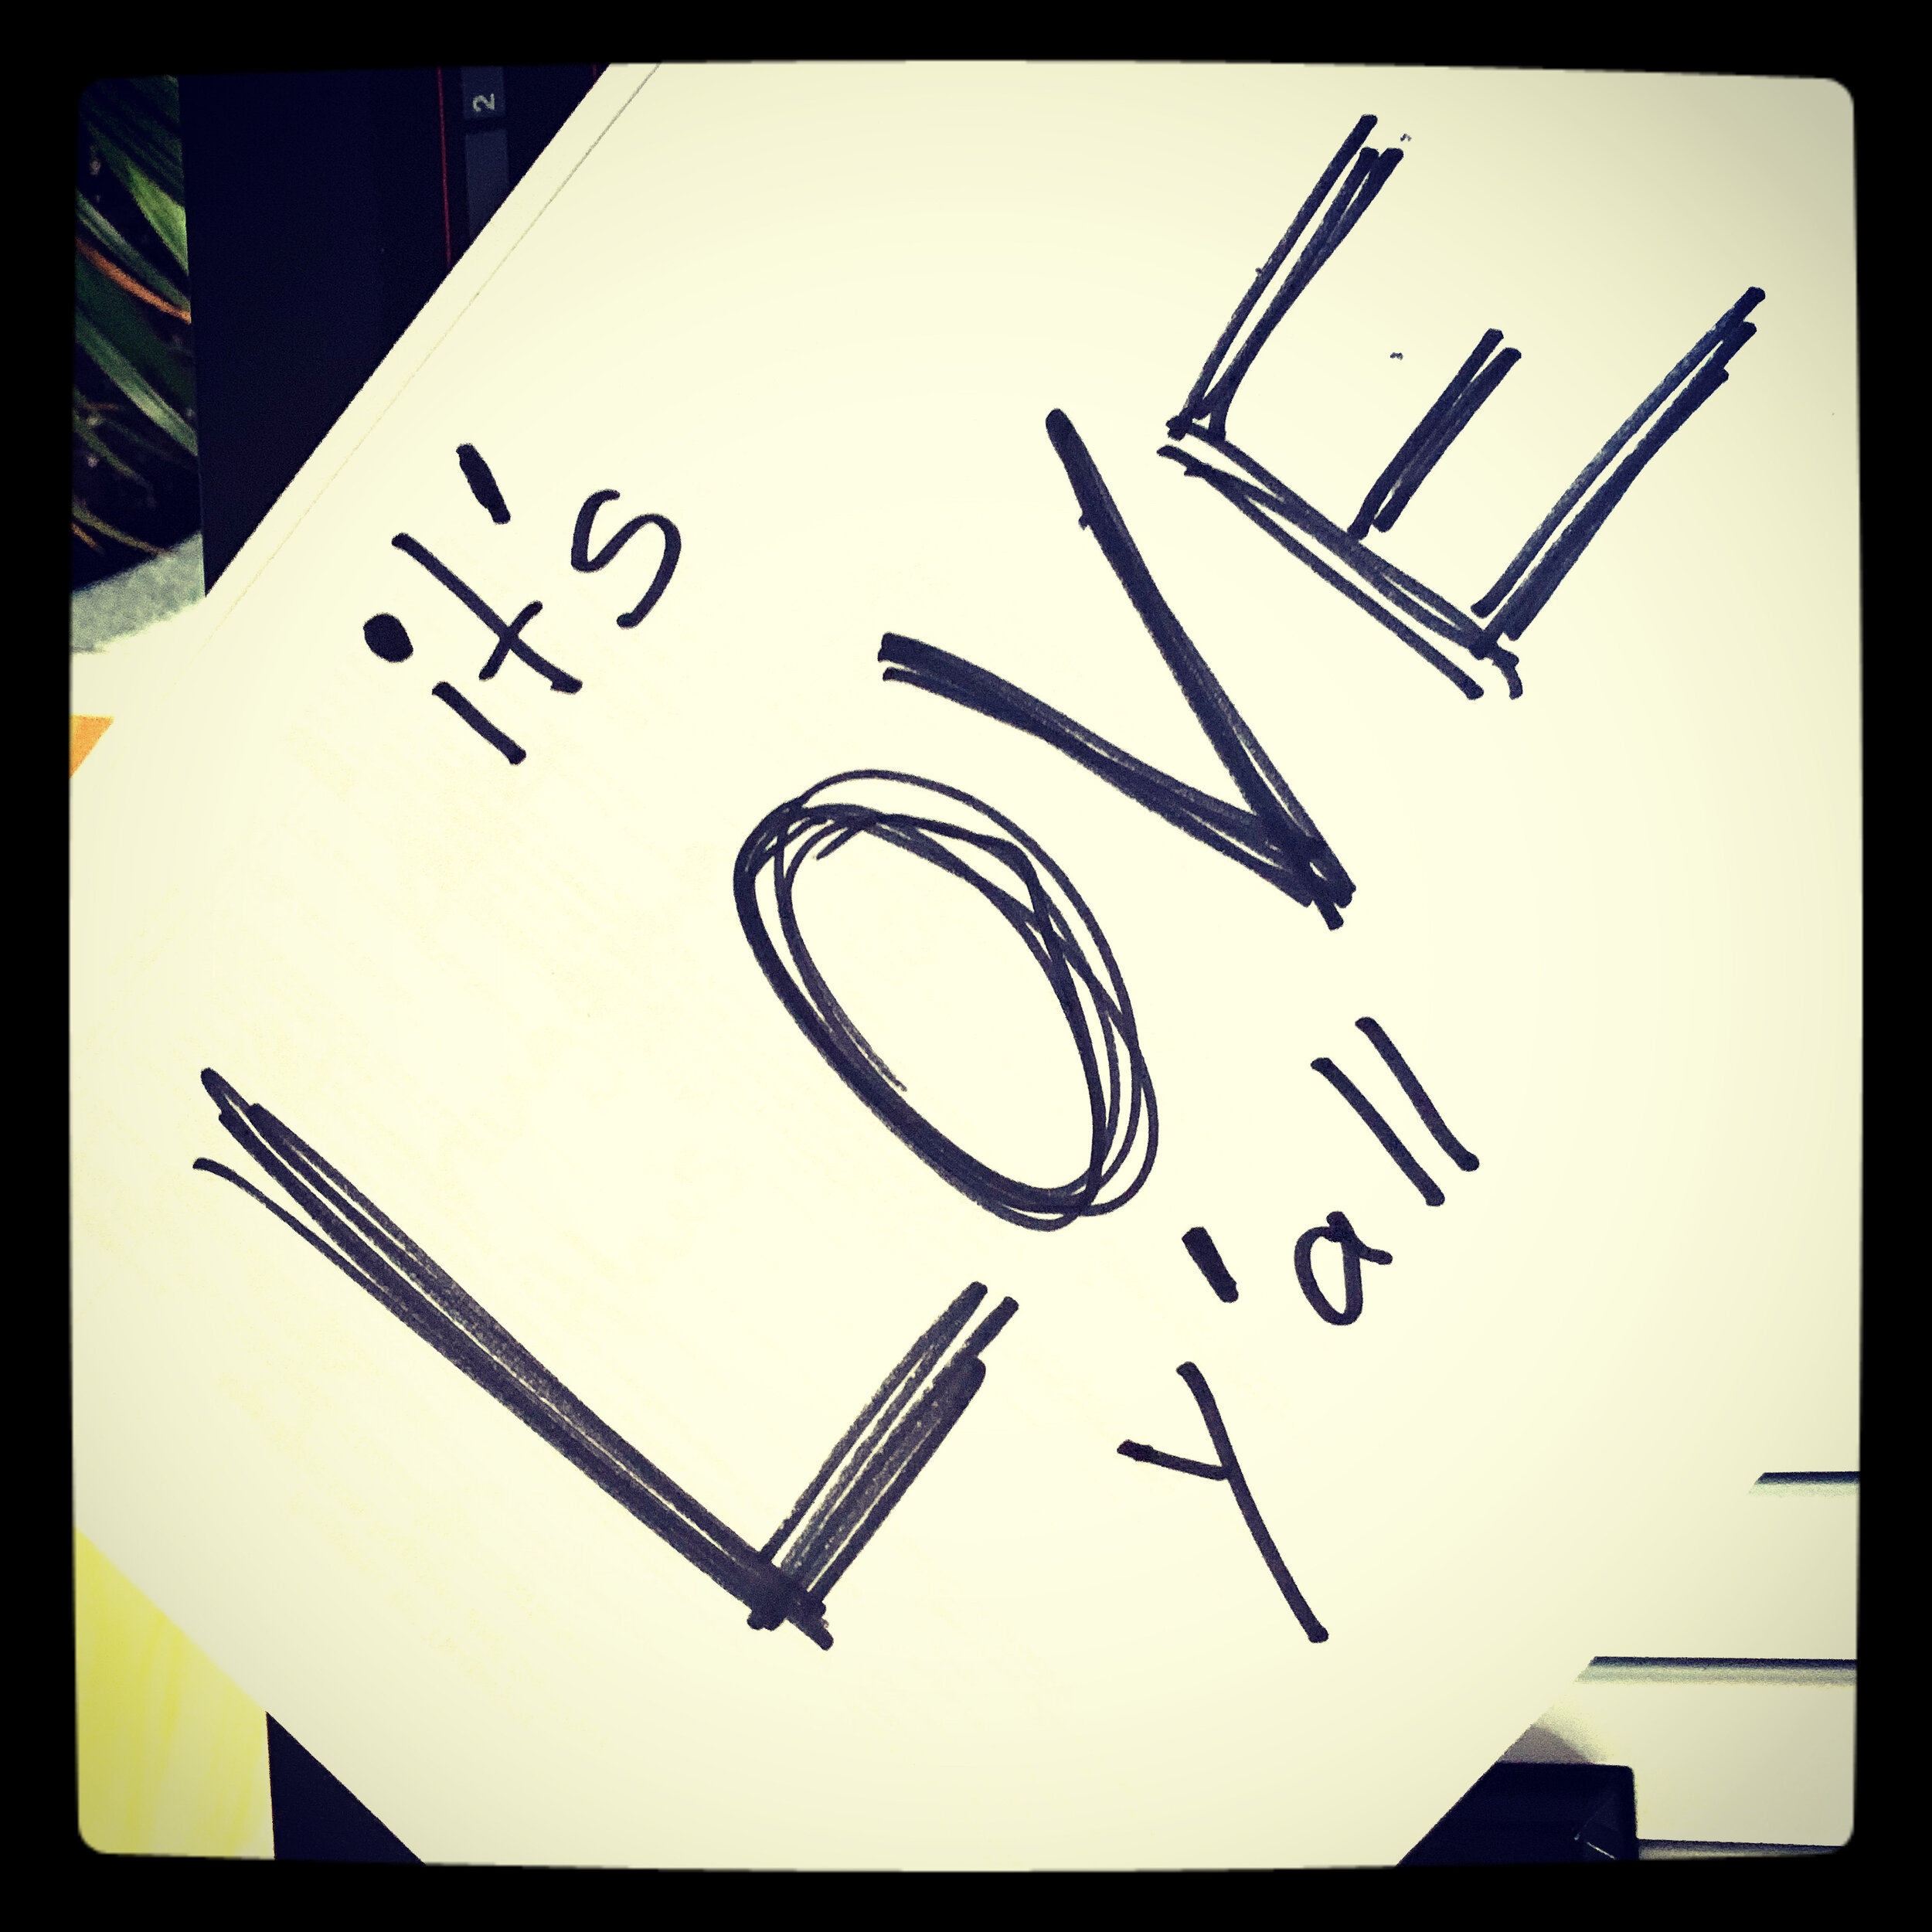 it's
LOVE
y'all
2